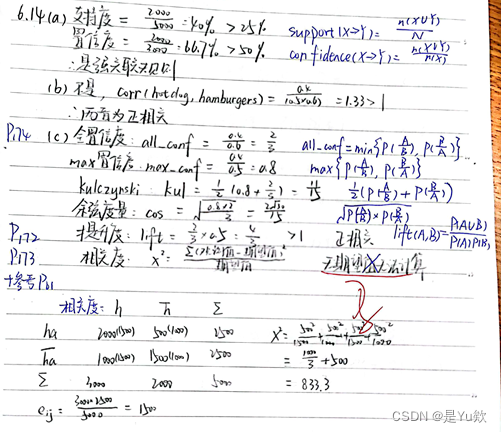 6.14 (a) 支持度 = 2000/5000 = 40% > 25% support(X→Y) = n(X∪Y)/N
置信度 = 2000/3000 = 66.7% > 50% confidence(X→Y) = n(X∪Y)/n(X)
∴是强关联规则
(b) 不是, corr(hotdog, hamburgers) = 0.4/(0.5×0.6) = 1.33 > 1
∴两者为正相关
P174 (c) 全置信度: all_conf = 0.4/0.6 = 2/3 all_conf = min{P(A/B), P(B/A)}
max置信度: max_conf = 0.4/0.5 = 0.8 max{P(A/B), P(B/A)}
kulczynski: kul = 1/2 (0.8 + 2/3) = 11/15 1/2(P(A/B) + P(B/A))
余弦度量: cos = √(0.8×2/3) = 2√30/15 √P(A/B)×P(B/A)
P172 提升度: lift = 2/3 ÷ 0.5 = 4/3 > 1 正相关 lift(A,B) = P(A∪B)/P(A)P(B)
P173 相关度: χ² = Σ(观测值-期望值)²/期望值
+参考P61
相关度: h h̅ Σ
ha 2000(1500) 500(1000) 2500 χ² = 500²/1500 + 500²/1000 + 500²/1500 + 500²/1000
h̅a̅ 1000(1500) 1500(1000) 2500 = 1000/3 + 500
Σ 3000 2000 5000 = 833.3
eij = 3000×2500/5000 = 1500
CSDN @是Yu欸